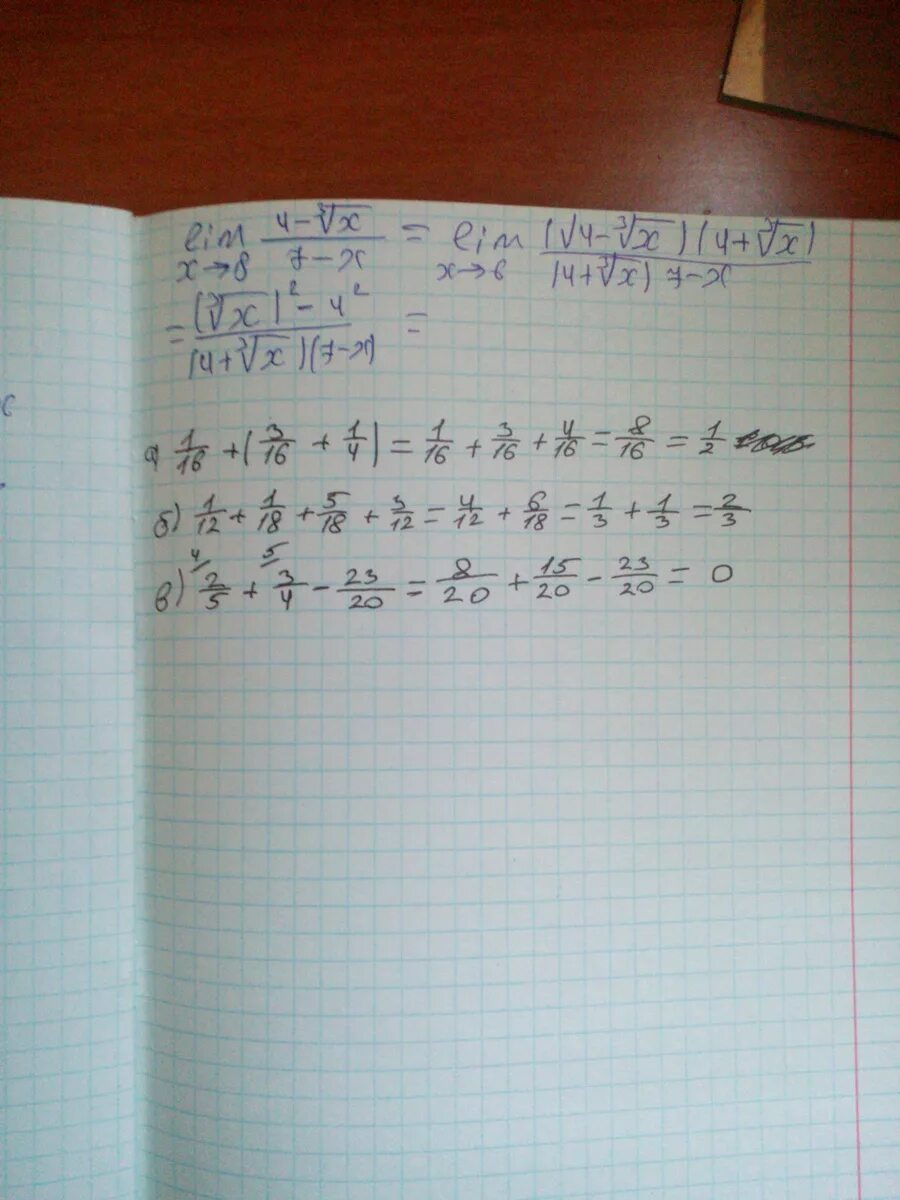 lim (4-∛x)/(7-x) = lim ((√4-∛x)(4+∛x))/((4+∛x) 7-x)
x→8 x→8
= ((∛x)²-4²)/((4+∛x)(7-x)) =
а) 1/16 + (3/16 + 1/4) = 1/16 + 3/16 + 4/16 = 8/16 = 1/2
б) 1/12 + 1/18 + 5/18 + 3/12 = 4/12 + 6/18 = 1/3 + 1/3 = 2/3
4 5
в) 2/5 + 3/4 - 23/20 = 8/20 + 15/20 - 23/20 = 0